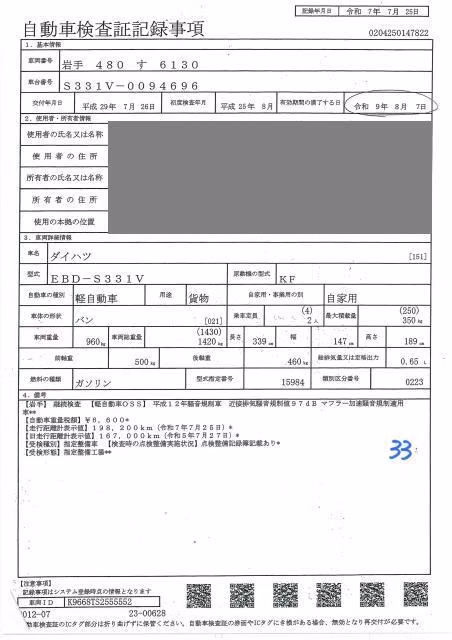 記録年月日 令和 7年 7月 25日
自動車検査証記録事項 0204250147822
1．基本情報
車両番号 岩手 480 す 6130
車台番号 S331V－0094696
交付年月日 平成29年 7月 26日 初度検査年月 平成25年 8月 有効期間の満了する日 令和 9年 8月 7日
2．使用者・所有者情報
使用者の氏名又は名称
使用者の住所
所有者の氏名又は名称
所有者の住所
使用の本拠の位置
3．車両詳細情報
車名 ダイハツ [151]
型式 EBD－S331V 原動機の型式 KF
自動車の種別 軽自動車 用途 貨物 自家用・事業用の別 自家用
車体の形状 バン [021] 乗車定員 (4) 2人 最大積載量 (250) 350kg
車両重量 960kg 車両総重量 (1430) 1420kg 長さ 339cm 幅 147cm 高さ 189cm
前前軸重 500kg 後後軸重 460kg 総排気量又は定格出力 0.65L
燃料の種類 ガソリン 型式指定番号 15984 類別区分番号 0223
4．備考
【岩手】 継続検査 【軽自動車OSS】 平成12年騒音規制車 近接排気騒音規制値97dB マフラー加速騒音規制適用
車**
【自動車重量税額】¥6,600*
【走行距離計表示値】198,200km（令和7年7月25日）*
【旧走行距離計表示値】167,000km（令和5年7月27日）*
【受検種別】指定整備車 【検査時の点検整備実施状況】点検整備記録簿記載あり*
【受検形態】指定整備工場**
33
【注意事項】
記載事項はシステム登録時点の情報となります
車両ID K9668TS2555552
012-07 23-00628
自動車検査証のICタグ部分は折り曲げずに保管ください。自動車検査証の券面やICタグにき損がある場合、無効となり再交付が必要です。